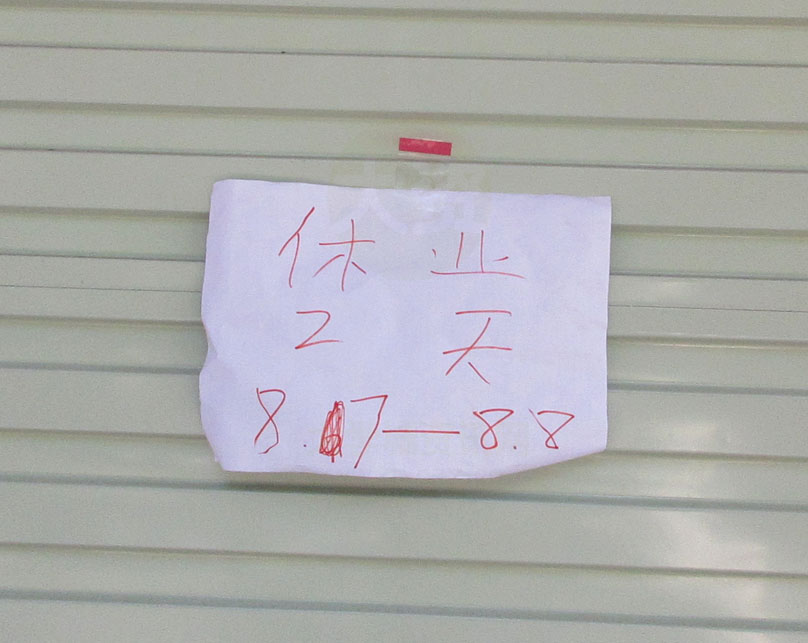 休业
2天
8.7—8.8